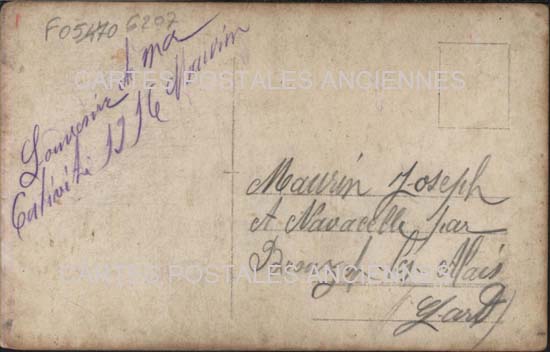 F05470 6207
Souvenir d ma
Cativité 1916 Maurin
CARTES POSTALES ANCIENNES
Maurin Joseph
A Navacelle par
Brouzet les Alais
Gard
CARTES POSTALES ANCIENNES